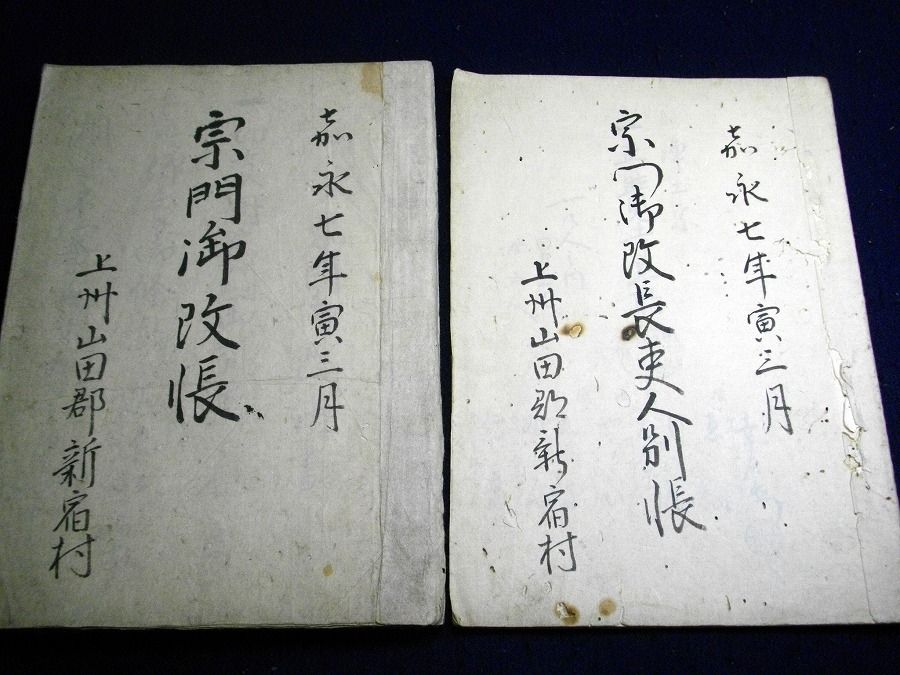 嘉永七年寅三月
宗門御改帳
上州山田郡新宿村
嘉永七年寅三月
宗門御改長吏人別帳
上州山田郡新宿村